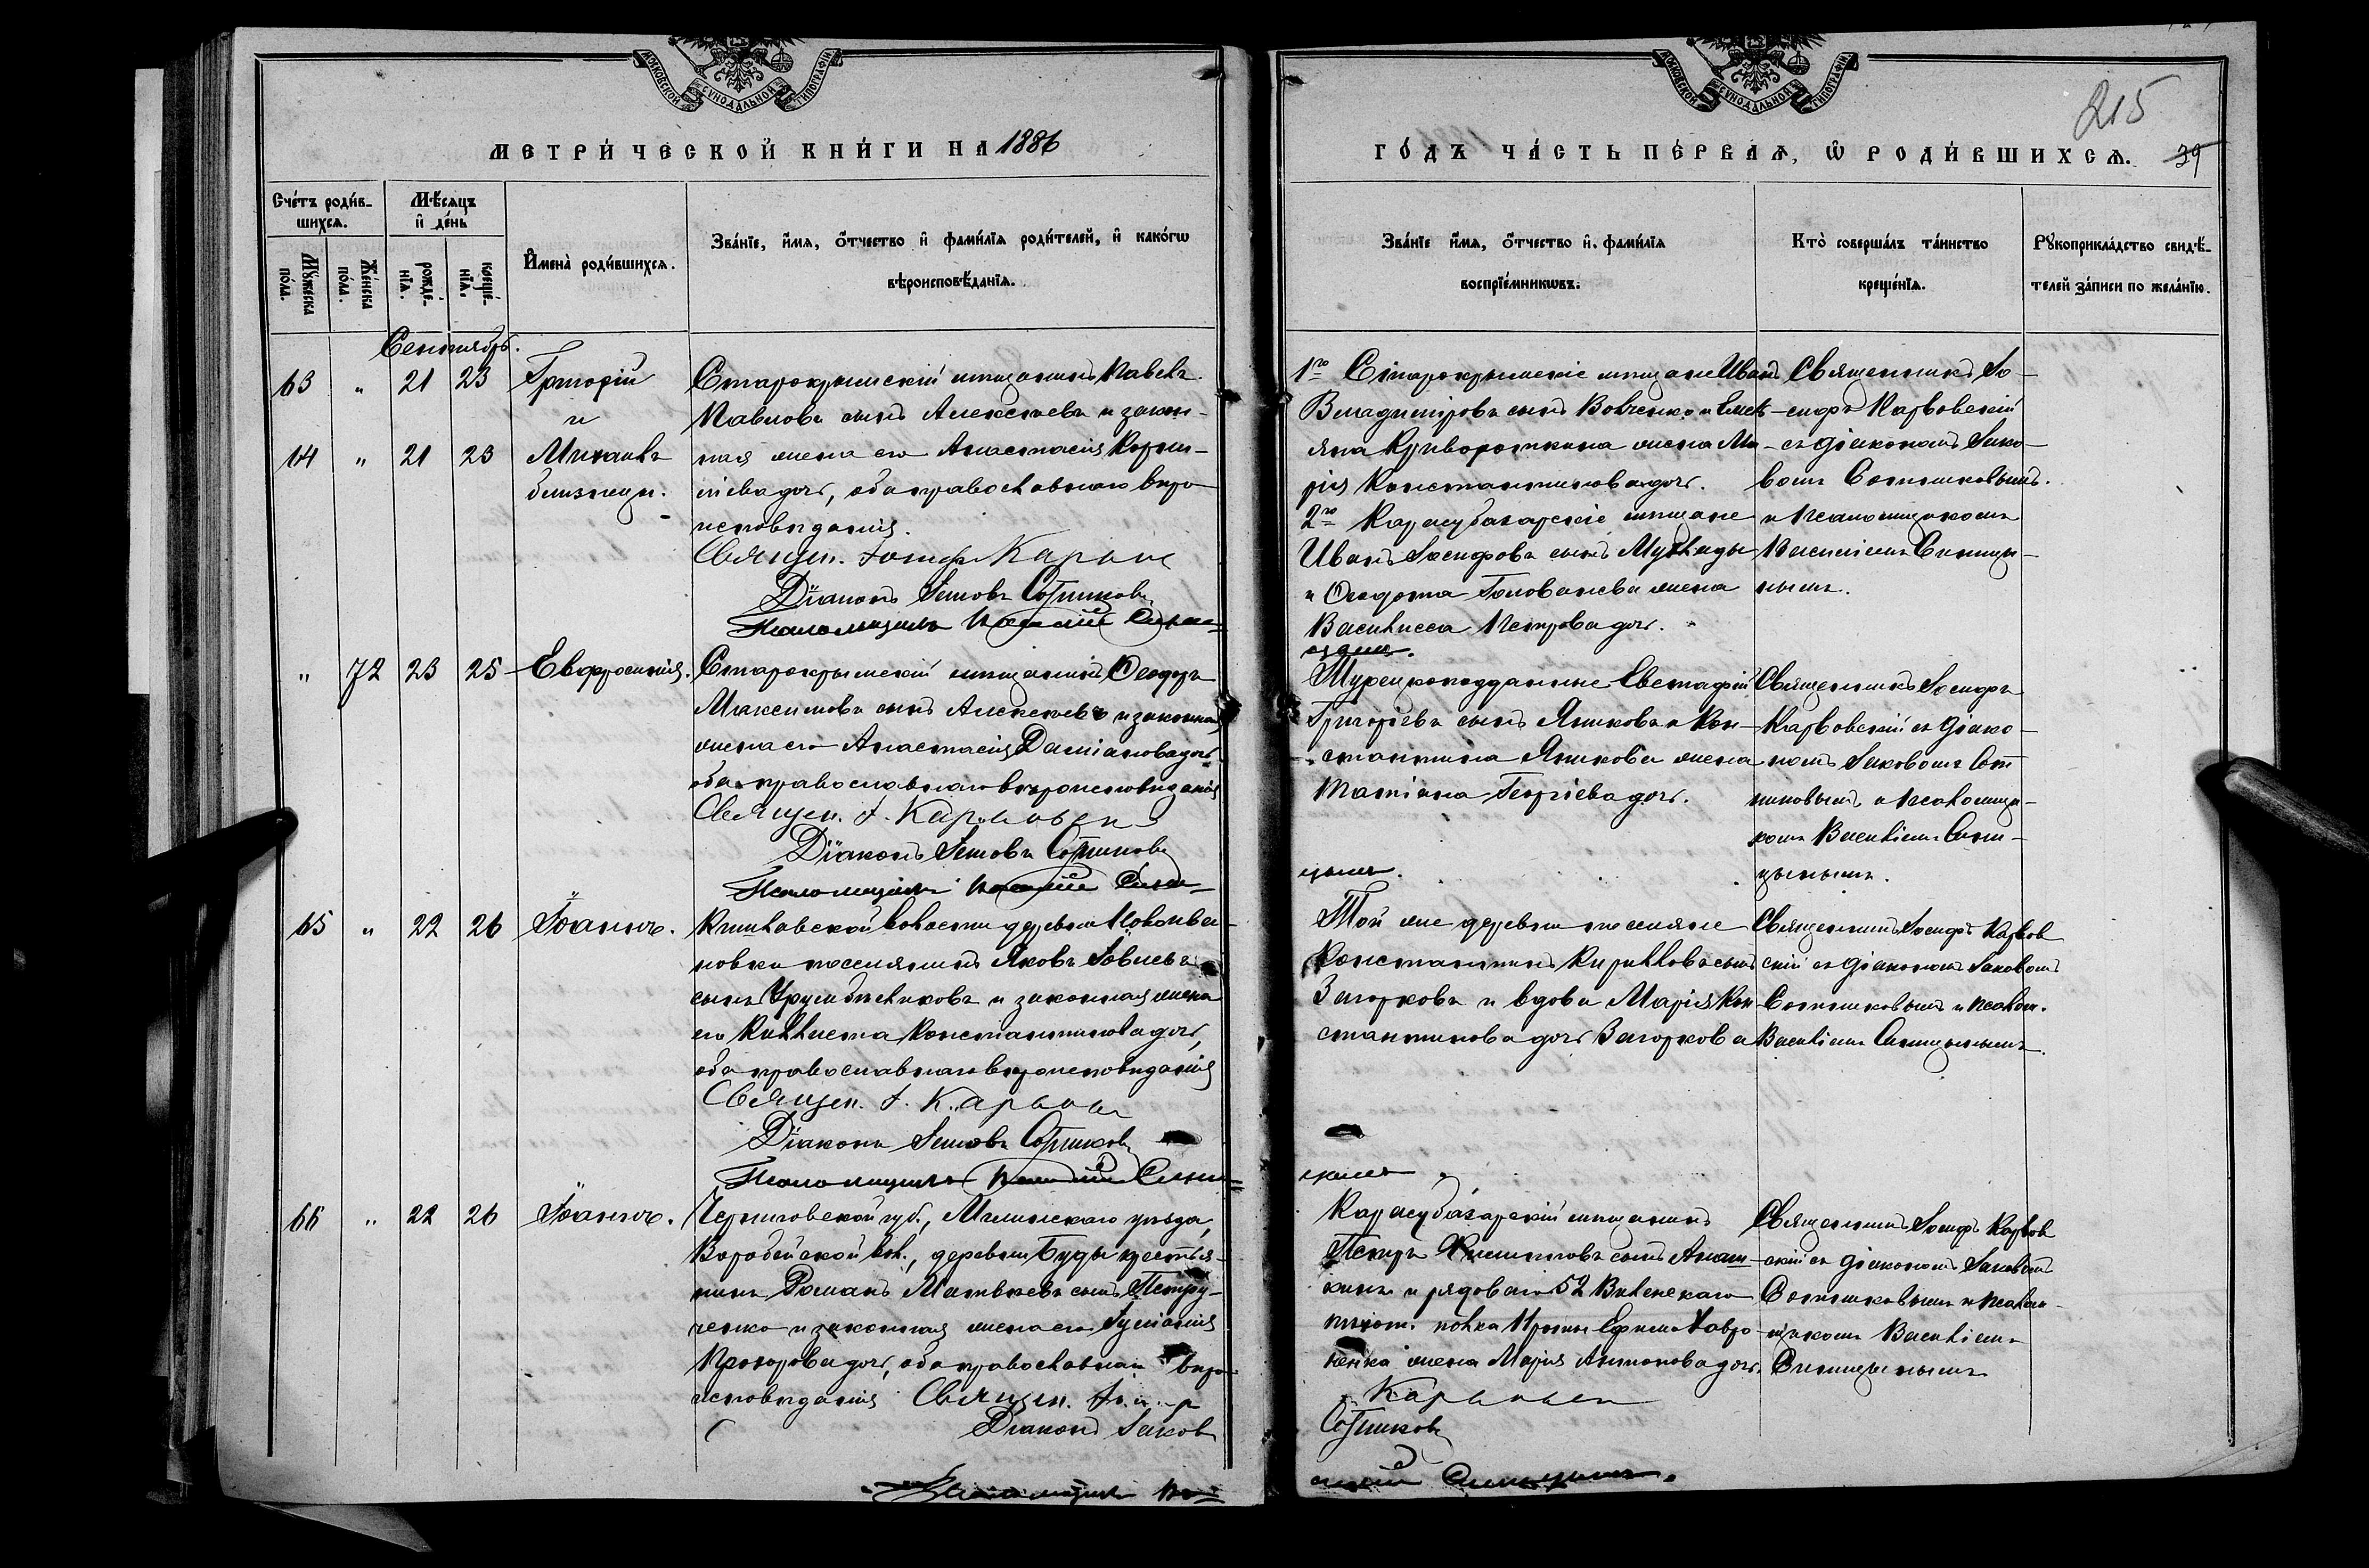 МОСКОВСКОЙ СѴНОДАЛЬНОЙ ТИПОГРАФІИ
МЕТРИ́ЧЕСКОЙ КНИ́ГИ НА 1886
Счéтъ роди́в-
шихсѧ.
Мѣ́сяцъ
и҆ де́нь
Мꙋ́жеска
по́ла.
Же́нска
по́ла.
рожде́-
нїѧ.
креще́-
нїѧ.
И҆мена̀ роди́вшихсѧ.
Зва́нїе, и҆́мѧ, ѻ҆́тчество и҆ фами́лїѧ роди́телей, и҆ како́гѡ
вѣроисповѣ́данїѧ.
Сентябрь.
63 " 21 23 Григорій
и
64 " 21 23 Михаилъ
близнецы.
Старокрымскій мѣщанинъ Павелъ
Павловъ сынъ Алексѣевъ и закон-
ная жена его Анастасія Корни-
ліева дочь, оба православнаго вѣро
исповѣданія.
Священ. Іосифъ Карвов
Діаконъ Іаковъ Сотниковъ
Псаломщикъ Василій Сини=
" 72 23 25 Евфросинія.
Старокрымскій мѣщанинъ Ѳеодоръ
Максимовъ сынъ Алексѣевъ и законная
жена его Анастасія Даміанова дочь
оба православнаго вѣроисповѣданія
Священ. І. Карвовск
Діаконъ Іаковъ Сотниковъ
Псаломщикъ Василій Сини=
65 " 22 26 Іоаннъ.
Кишлавской волости деревни Новоива-
новки поселянинъ Яковъ Іовлевъ
сынъ и законная жена
его Каллиста Константинова дочь,
оба православнаго вѣроисповѣданія
Священ. І. Карвов
Діаконъ Іаковъ Сотниковъ
Псаломщикъ Василій Сини=
66 " 22 26 Іоаннъ.
Черниговской губ., Мглинскаго уѣзда,
Воробейской вол., деревни Буды крестья-
нинъ Романъ Матвѣевъ сынъ Петру-
ченко и законная жена его Іуліанія
Прохорова дочь, оба православнаго вѣро
исповѣданія Священ. Іосиф
Діаконъ Іаковъ
Псаломщикъ Ва=
МОСКОВСКОЙ СѴНОДАЛЬНОЙ ТИПОГРАФІИ
215
ГО́ДЪ ЧА́СТЬ ПЕ́РВАѦ, Ѡ҆ РОДИ́ВШИХСѦ. 39
Зва́нїе и҆́мѧ, ѻ҆́тчество и҆ фами́лїѧ
воспрїе́мникѡвъ.
Кто̀ соверша́лъ та́инство
креще́нїѧ.
Рꙋкоприкла́дство свидѣ́-
телей за́писи по жела́нїю.
1го Старокрымскіе мѣщане Иванъ
Владиміровъ сынъ Вовченко и Емель-
яна Кривороткина жена Ма-
рія Константинова дочь.
2го Карасубазарскіе мѣщане
Иванъ Іосифовъ сынъ
и Ѳеодота Голованева жена
Василисса Петрова дочь.
Священникъ Іо-
сифъ Карвовскій
съ діакономъ Іако-
вомъ Сотниковымъ
и псаломщикомъ
Василіемъ Синицы-
нымъ.
цынъ.
Турецкоподданные Евстафій
Григорьевъ сынъ Яниковъ и Кон-
стантина Яникова жена
Татіана Георгіева дочь.
Священникъ Іосифъ
Карвовскій съ діако-
номъ Іаковомъ Сот
никовымъ и псаломщи-
комъ Василіемъ Сини-
цынымъ.
цынъ.
Той же деревни поселяне
Константинъ Кирилловъ сынъ
Загорковъ и вдова Марія Кон-
стантинова дочь Загоркова
Священникъ Іосифъ Карвов
скій съ діакономъ Іаковомъ
Сотниковымъ и псалом.
Василіемъ Синицынымъ.
цынъ
Карасубазарскій мѣщанинъ
Петръ сынъ
кинъ и рядового 52 Виленскаго
пѣхот. полка Ефима Хавро
ненка жена Марія Антонова дочь.
Священникъ Іосифъ Карвов
скій съ діакономъ Іаковомъ
Сотниковымъ и псалом-
щикомъ Василіемъ
Синицынымъ
Карвовск
Сотниковъ
силій Синицынъ.